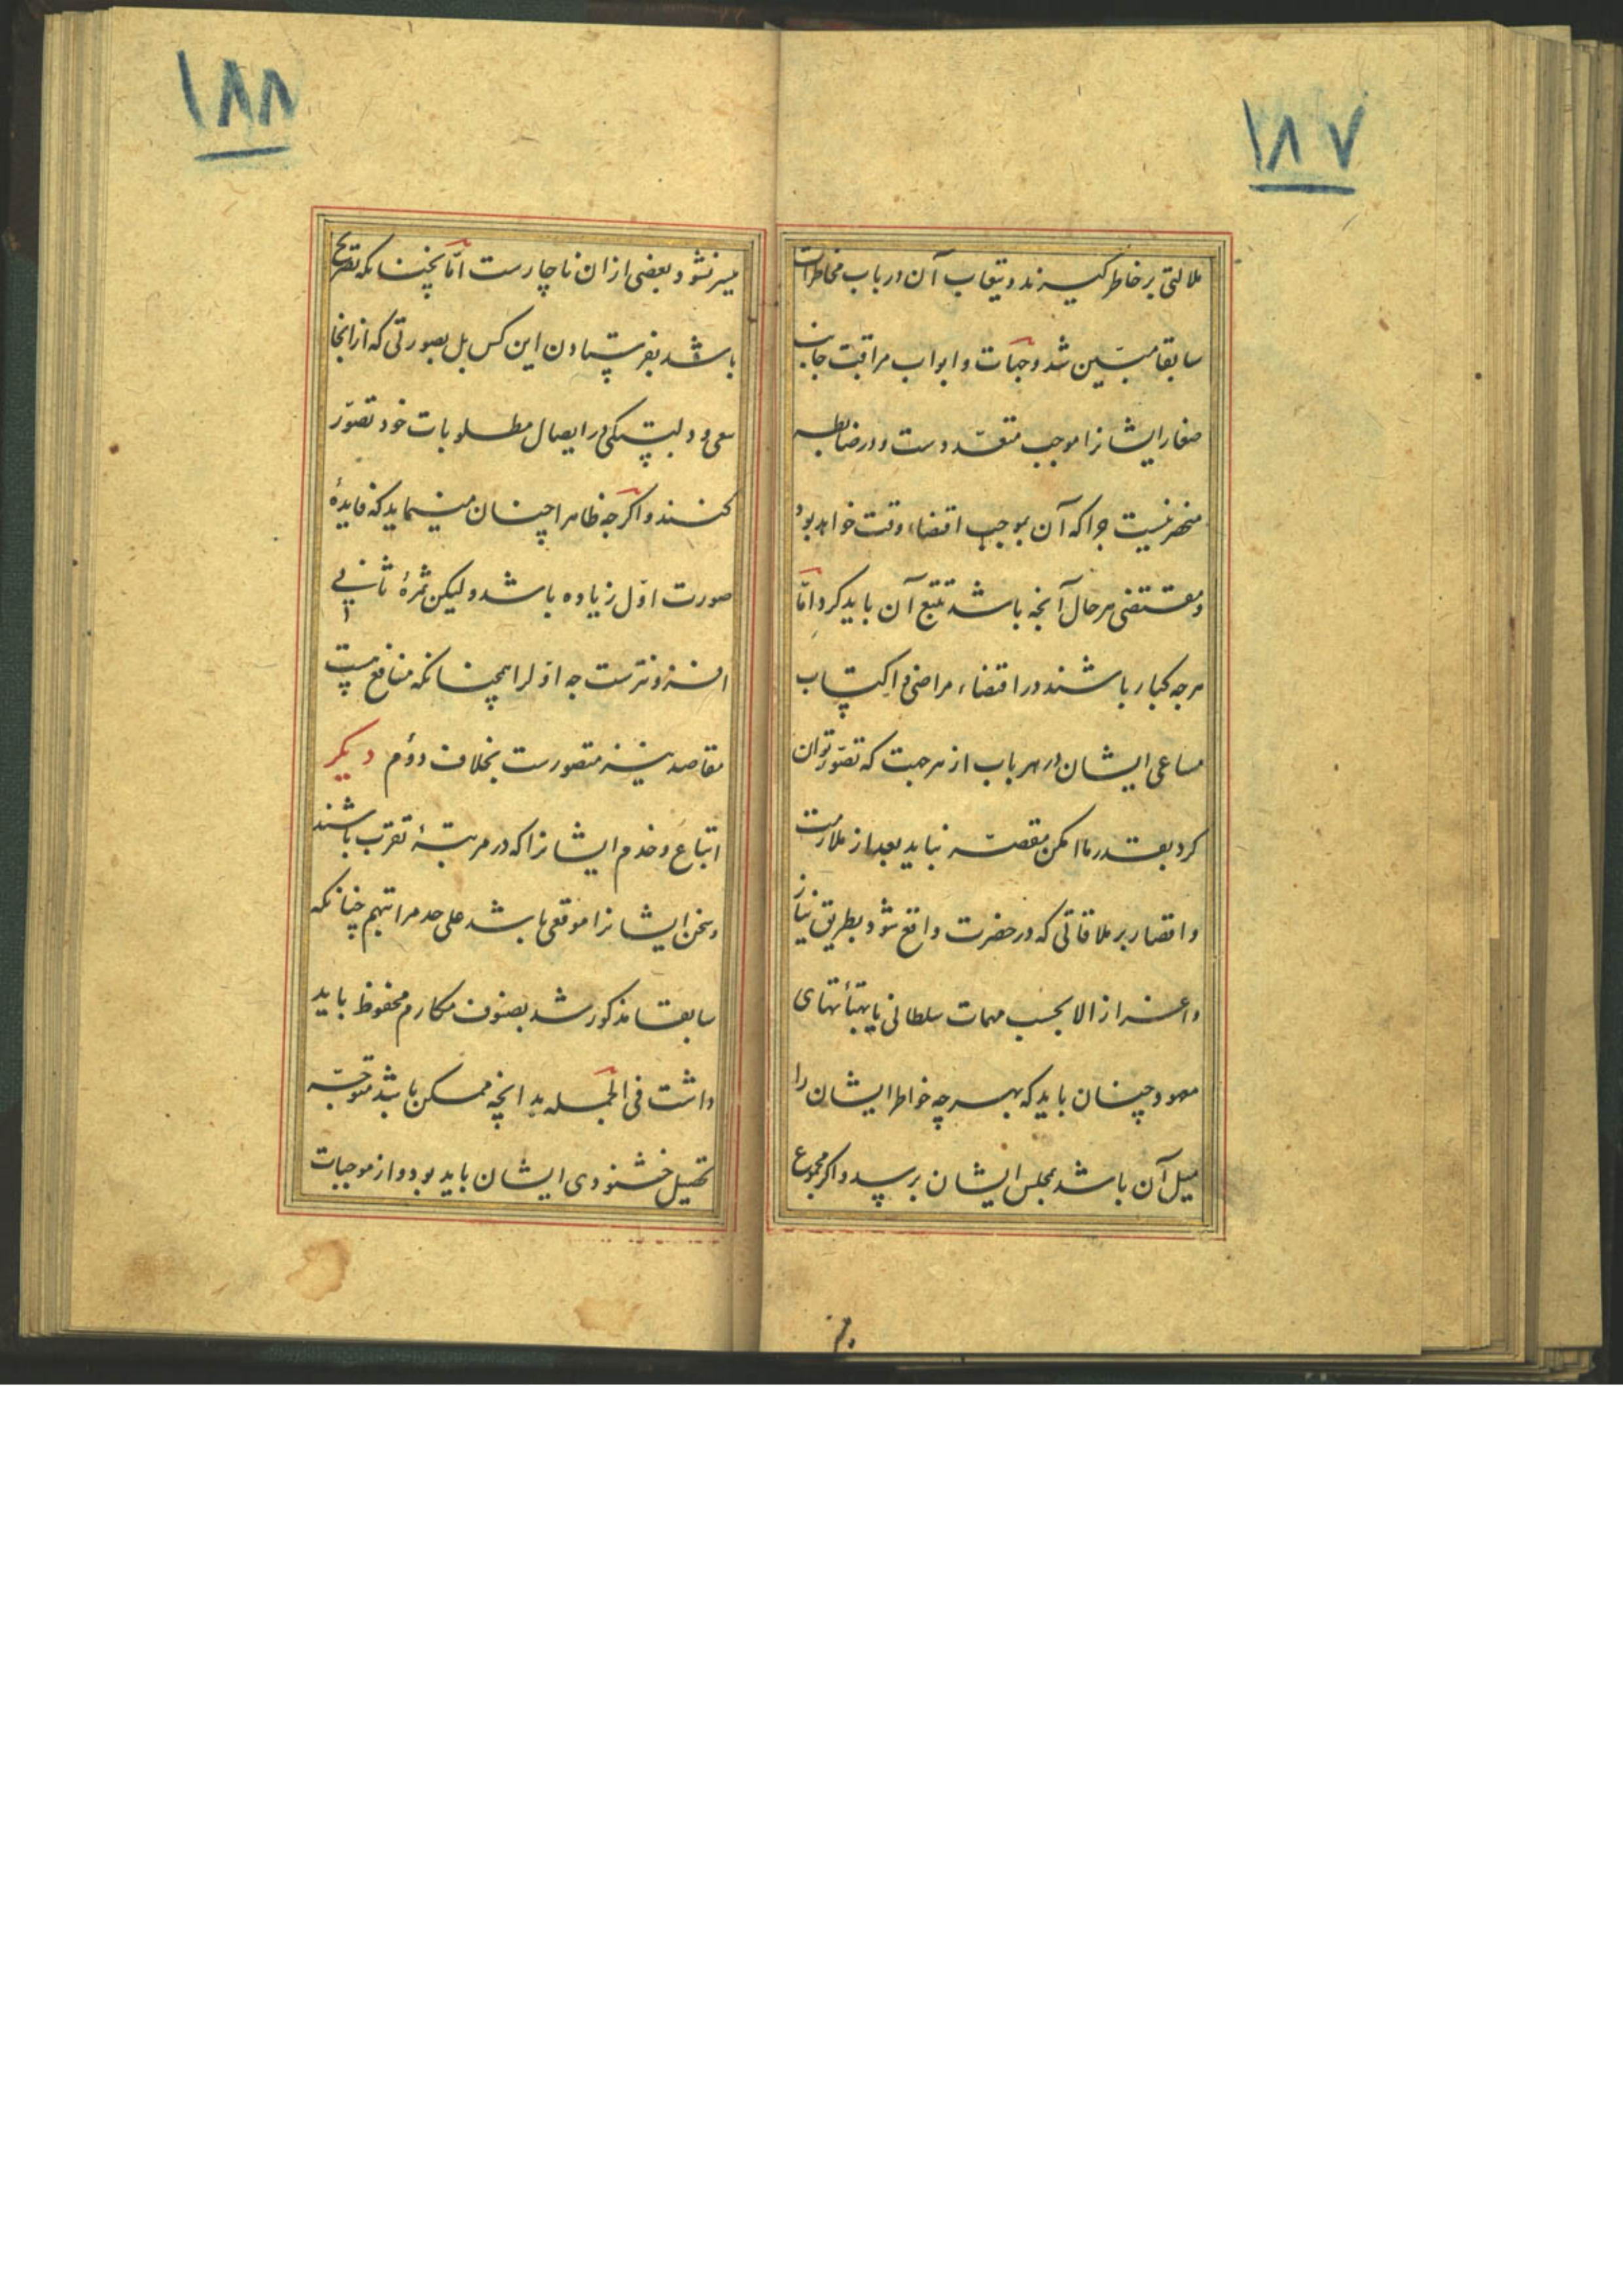 ١٨٧
ملالتی بر خاطر گیرند و تبعات آن در باب مخاطرات
سابقا مبیّن شد و جهات و ابواب مراقبت جانب
صغار ایشانرا موجب متعدّدست و در ضابطه
منحصر نیست چرا که آن بموجب اقتضاء وقت خواهد بود
و مقتضی هر حال آنچه باشد تتبع آن باید کرد امّا
هر چه کبار باشند در اقتضاء مراضی و اکتساب
مساعی ایشان در هر باب از هر جهت که تصوّر توان
کرد بقدر ما امکن مقصّر نباید بعد از ملازمت
و اقتصار بر ملاقاتی که در حضرت واقع شود بطریق نیاز
و اعزاز الا بحسب مهمات سلطانی یا
معهود چنان باید که بهر چه خواطر ایشان را
میل آن باشد بمجلس ایشان برسد و اگر مجموع
١٨٨
میسر نشود بعضی ازان ناچارست امّا نچنانکه تصریح
باشد بفرستادن این کس بل بصورتی که از انجا
سعی و دلبستگی در ایصال مطلوبات خود تصوّر
کنند و اگر چه ظاهرا چنان مینماید که فایدهٔ
صورت اوّل زیاده باشد ولیکن ثمرهٔ ثانی
افزونترست چه اوّلرا همچنانکه منافع هست
مقاصد نیز متصورست بخلاف دوّم دیگر
اتباع و خدم ایشانرا که در مرتبهٔ تقرّب باشند
و سخن ایشانرا موقعی باشد علی حد مراتبهم چنانکه
سابقا مذکور شد بصنوف مکارم محفوظ باید
داشت فی الجمله بدانچه ممکن باشد متوجّه
تحصیل خشنودی ایشان باید بود و از موجبات